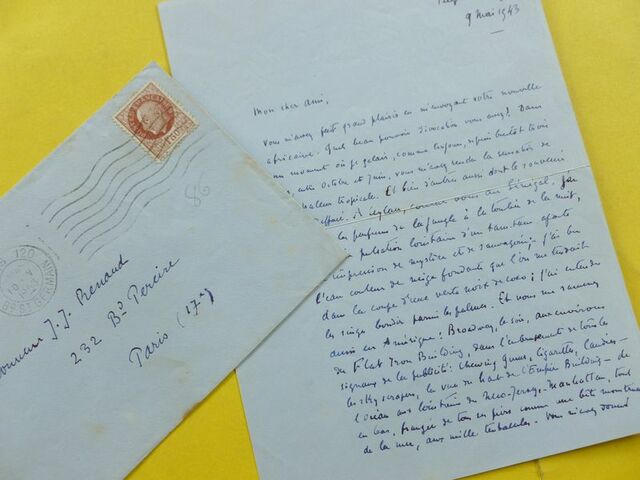 9 Mai 1943
Mon cher ami,
Vous m'avez fait grand plaisir en m'envoyant votre nouvelle
africaine. Quel beau pouvoir d'évocation vous avez! Dans
un moment où je gelais, comme toujours,
entre Octobre et Juin, vous m'avez rendu la sensation de
chaleur tropicale. Et bien d'autres aussi dont le souvenir
effacé. A Ceylan, comme vous au Sénégal, j'ai
les parfums de la jungle à la tombée de la nuit,
pulsation lointaine d'un tam-tam
impression de mystère et de sauvagerie; j'ai bu
l'eau couleur de neige fondante que l'on me tendait
dans la coupe d'une verte noix de coco; j'ai entendu
les singes bondir parmi les palmes. Et vous me ramenez
aussi en Amérique: Broadway, le soir, aux environs
du Flat Iron Building, dans l'embrasement de tous les
signaux de la publicité: chewing gums, cigarettes,
les sky scrapers, la vue du haut de l'Empire Building - de
l'Océan aux lointains du New-Jersey - Manhattan, tout
en bas, frangée de ses piers comme une bête monstrueuse
de la mer, aux mille tentacules. Vous m'avez donné
86
Monsieur J. J. Renaud
232 Bd Pereire
Paris (17e)